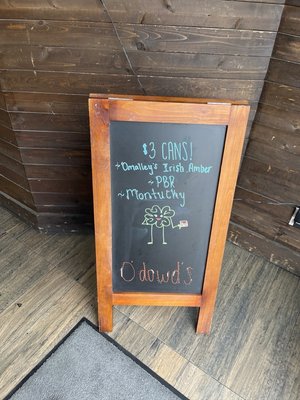 $3 CANS!
~Omalley's Irish Amber
~PBR
~Montucky
O'dowd's